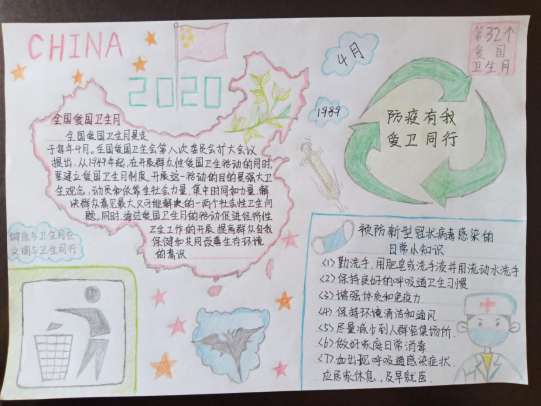 CHINA
2020
4月
1989
第32个
爱国
卫生月
防疫有我
爱卫同行
全国爱国卫生月
全国爱国卫生月是定
于每年4月。全国爱国卫生会第八次委员会扩大会议
提出，从1989年起，在开展群众性爱国卫生活动的同时，
要建立爱国卫生月制度，开展这一活动的目的是强大卫
生观念，动员和依靠社会力量，集中时间和力量，解
决群众看见最大又可能解决的一两个社会性卫生问
题。同时，通过爱国卫生月的活动促进经常性
卫生工作的开展，提高群众自我
保健和共同改善生存环境
的意识
健康与卫生同在
文明与卫生同行
预防新型冠状病毒感染的
日常小知识
<1>勤洗手，用肥皂或洗手液并用流动水洗手
<2>保持良好的呼吸道卫生习惯
<3>增强体质和免疫力
<4>保持环境清洁和通风
<5>尽量减少到人群密集场所
<6>做好家庭日常消毒
<7>如出现呼吸道感染症状，
应居家休息，及早就医